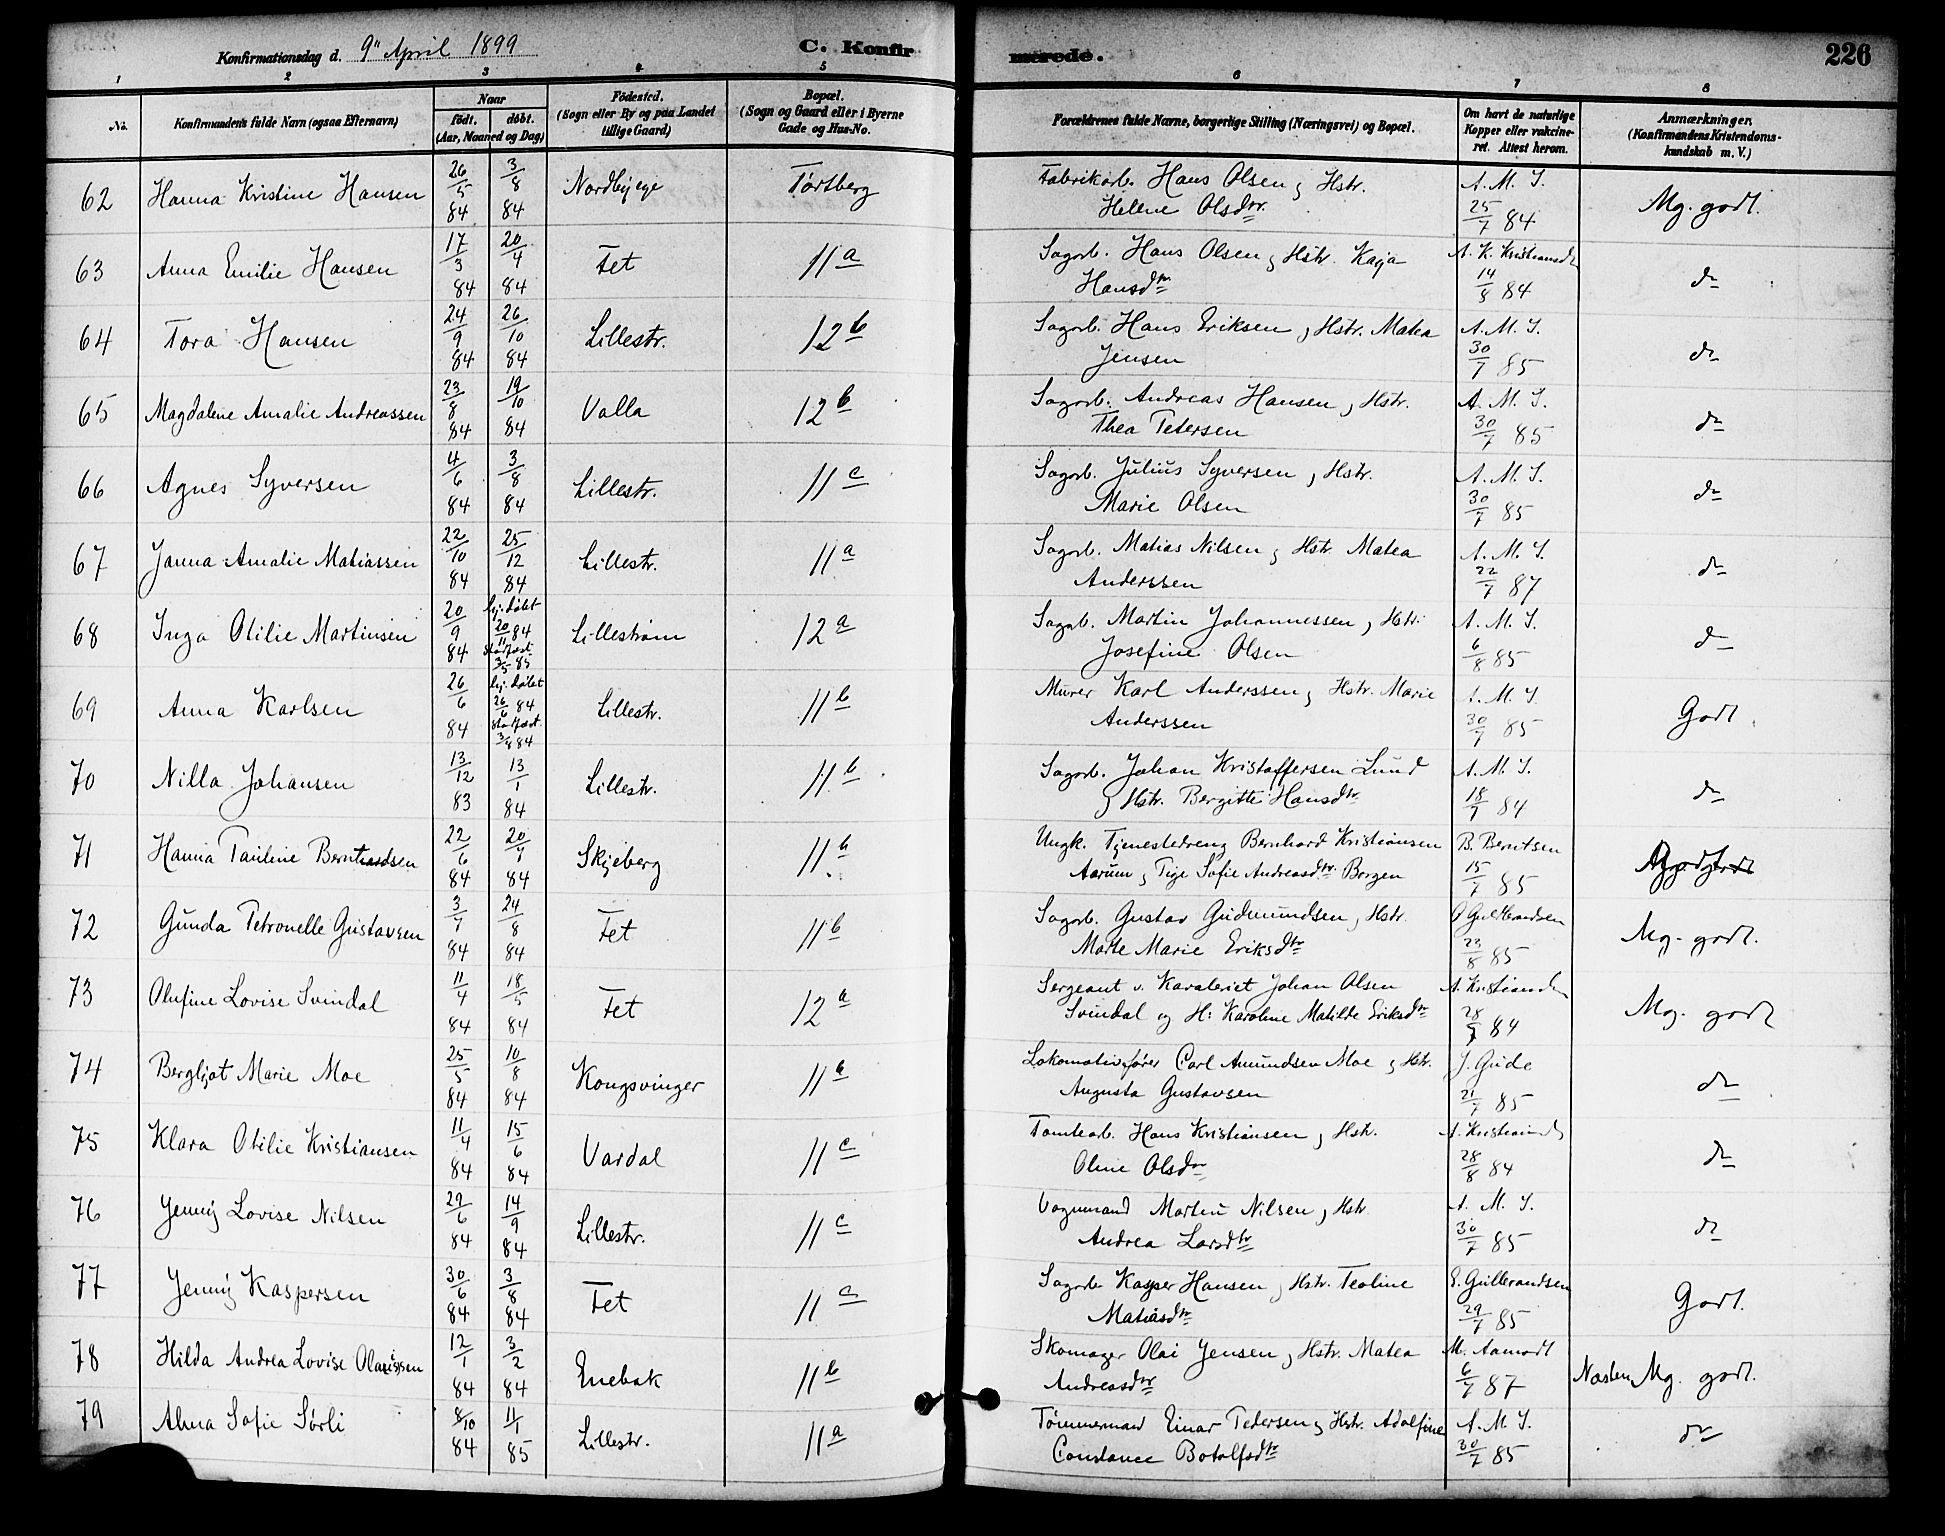 Konfirmationsdag d. 9" April 1899
C. Konfirmerede.
226
1 2 3 4 5 6 7 8
No.
Konfirmandens fulde Navn (ogsaa Efternavn)
Naar
födt. döbt.
(Aar, Maaned og Dag)
Födested.
(Sogn eller By og paa Landet
tillige Gaard)
Bopæl.
(Sogn og Gaard eller i Byerne
Gade og Hus-No.
Forældrenes fulde Navne, borgerlige Stilling (Næringsvei) og Bopæl.
Om havt de naturlige
Kopper eller vakcine-
ret. Attest herom.
Anmærkninger.
(Konfirmandens Kristendoms-
kundskab m. V.)
62 Hanna Kristine Hansen 26/5 84 3/8 84 Nordbyeje Tørtberg Fabrikarb. Hans Olsen og Hstr.
Helene Olsdtr. A. M. S. 25/7 84 Mg. godt.
63 Anna Emilie Hansen 17/3 84 20/4 84 Fet 11a Sagarb. Hans Olsen og Hstr. Kaja
Hansdtr A. K. Kristiansdr 14/8 84 do
64 Tora Hansen 24/9 84 26/10 84 Lillestr. 12b Sagarb. Hans Eriksen og Hstr. Matea
Jensen A. M. S. 30/7 85 do
65 Magdalene Amalie Andreassen 23/8 84 19/10 84 Valla 12b Sagarb. Andreas Hansen og Hstr.
Thea Petersen A. M. S. 30/7 85 do
66 Agnes Syversen 4/6 84 3/8 84 Lillestr. 11c Sagarb. Julius Syversen og Hstr.
Marie Olsen A. M. S. 30/7 85 do
67 Janna Amalie Matiassen 22/10 84 25/12 84 Lillestr. 11a Sagarb. Matias Nilsen og Hstr. Matea
Anderssen A. M. S. 22/7 87 do
68 Inga Otilie Martinsen 20/9 84 hj. døbt 20/11 84 stadfæst 3/5 85 Lillestrøm 12a Sagarb. Martin Johannessen og Hstr.
Josefine Olsen A. M. S. 6/8 85 do
69 Anna Karlsen 26/6 84 hj. døbt 26/6 84 stadfæst 3/8 84 Lillestr. 11b Murer Karl Anderssen og Hstr. Marie
Anderssen A. M. S. 30/7 85 Godt
70 Nilla Johansen 13/12 83 13/1 84 Lillestr. 11b Sagarb. Johan Kristoffersen Lund
og Hstr. Bergitte Hansdtr A. M. S. 18/7 84 do
71 Hanna Pauline Berntsen 22/6 84 20/7 84 Skjeberg 11b Ungk. Tjenestedreng Bernhard Kristiansen
Aarum og Pige Sofie Andreasdtr Borgen B. Berntsen 15/7 85
72 Gunda Petronelle Gustavsen 3/7 84 24/8 84 Fet 11b Sagarb. Gustav Gudmundsen og Hstr.
Marte Marie Eriksdtr G Gulbrandsen 23/8 85 Mg. godt.
73 Olufine Lovise Svindal 11/4 84 18/5 84 Fet 12a Sergeant v. Kavaleriet Johan Olsen
Svindal og H: Karoline Matilde Eriksdtr A. Kristiansdr 28/8 84 Mg. godt
74 Bergljot Marie Moe 25/5 84 10/8 84 Kongsvinger 11a Lokomotivfører Carl Amundsen Moe og Hstr.
Augusta Gustavsen J. Gude 21/7 85 do
75 Klara Otilie Kristiansen 11/4 84 15/6 84 Vardal 11c Tomtearb. Hans Kristiansen og Hstr.
Oline Olsdtr A. Kristiansdr 28/8 84 do
76 Jenny Lovise Nilsen 29/6 84 14/9 84 Lillestr. 11c Vognmand Martin Nilsen og Hstr
Andrea Larsdtr A. M. S. 30/7 85 do
77 Jenny Kaspersen 30/6 84 3/8 84 Fet 11c Sagarb Kasper Hansen og Hstr. Teoline
Matiasdtr E. Gulbrandsen 29/7 85 Godt.
78 Hilda Andrea Lovise Olaisen 12/1 84 3/2 84 Enebak 11b Skomager Olai Jensen og Hstr. Matea
Andreasdtr M. Aamodt 6/7 87 Næsten Mg. godt.
79 Alma Sofie Sørli 8/10 84 11/1 85 Lillestr. 11a Tømmermand Einar Pedersen og Hstr. Adolfine
Constance Botolfsdtr A. M. S. 30/7 85 do